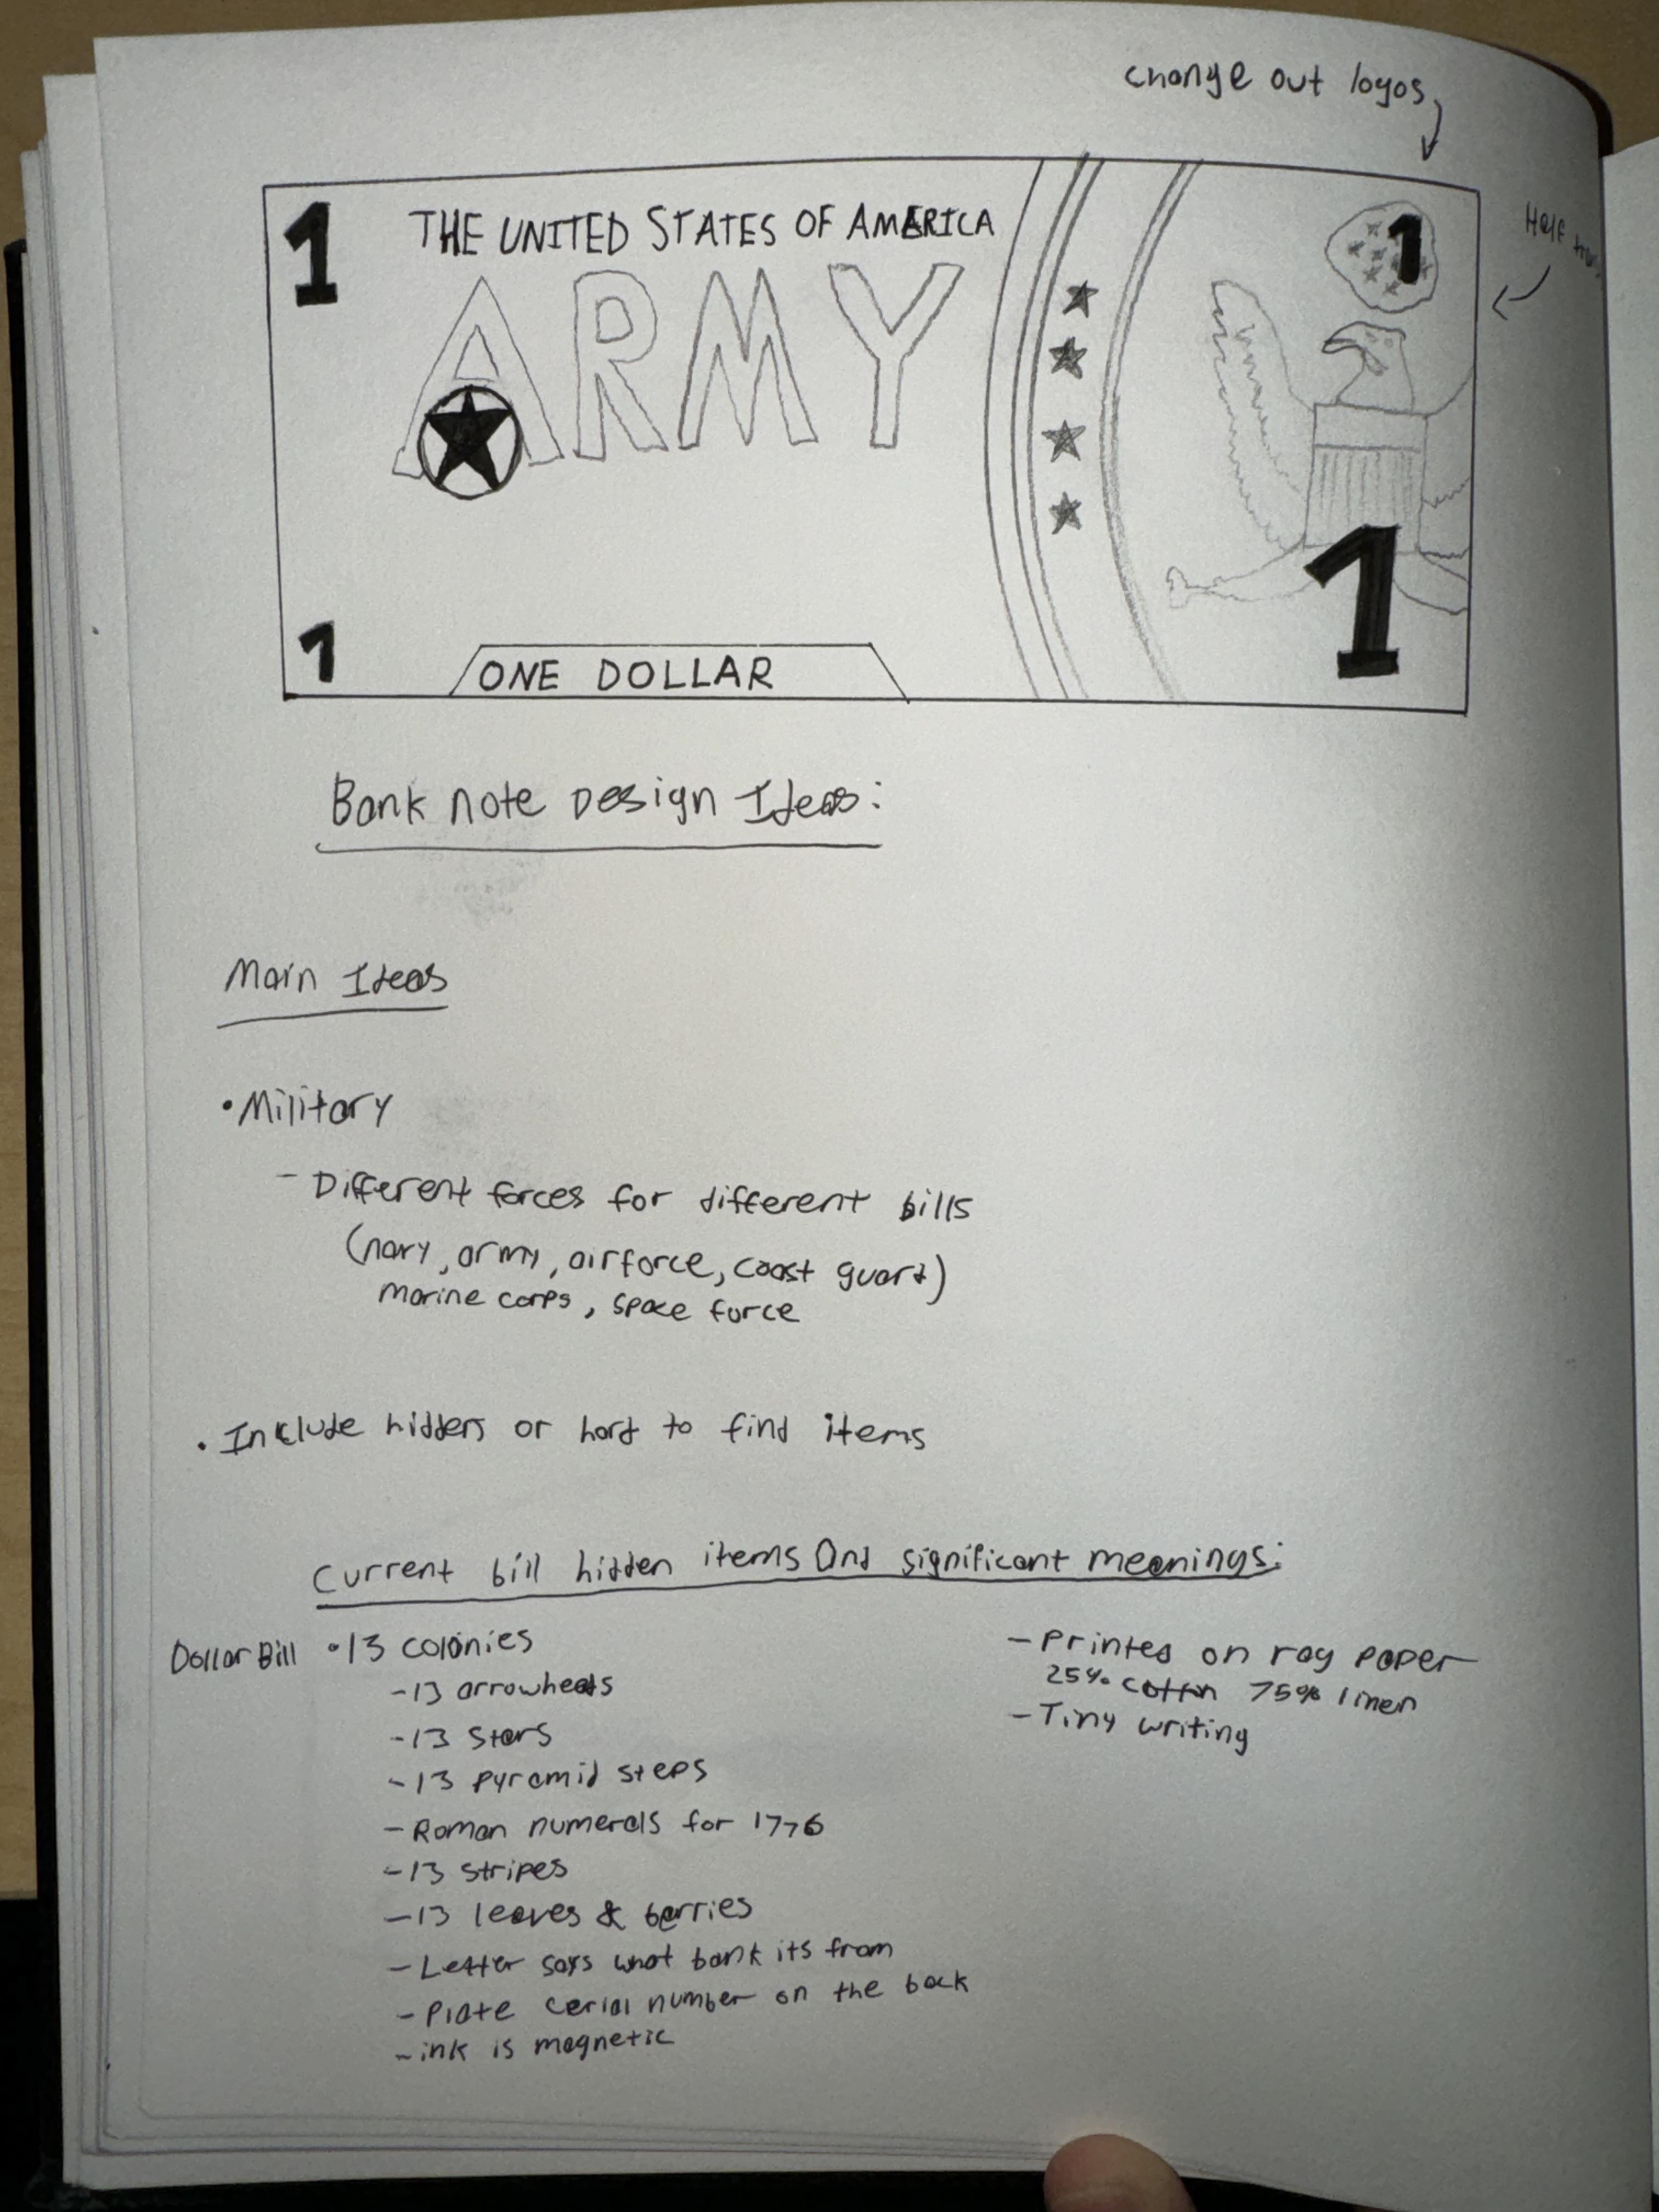 change out logos
1
THE UNITED STATES OF AMERICA
1
Half
ARMY
1
ONE DOLLAR
1
Bank note Design Ideas:
Main Ideas
•Military
- Different forces for different bills
(navy, army, airforce, coast guard)
marine corps, space force
• Include hidders or hard to find items
Current bill hidden items And significant meanings:
Dollar Bill •13 colonies
-13 arrowheads
-13 stars
-13 pyramid steps
-Roman numerals for 1776
-13 stripes
-13 leaves & berries
-Letter says what bank its from
-Plate cerial number on the back
-ink is magnetic
-Printed on rag paper
25% cotton 75% linen
-Tiny writing